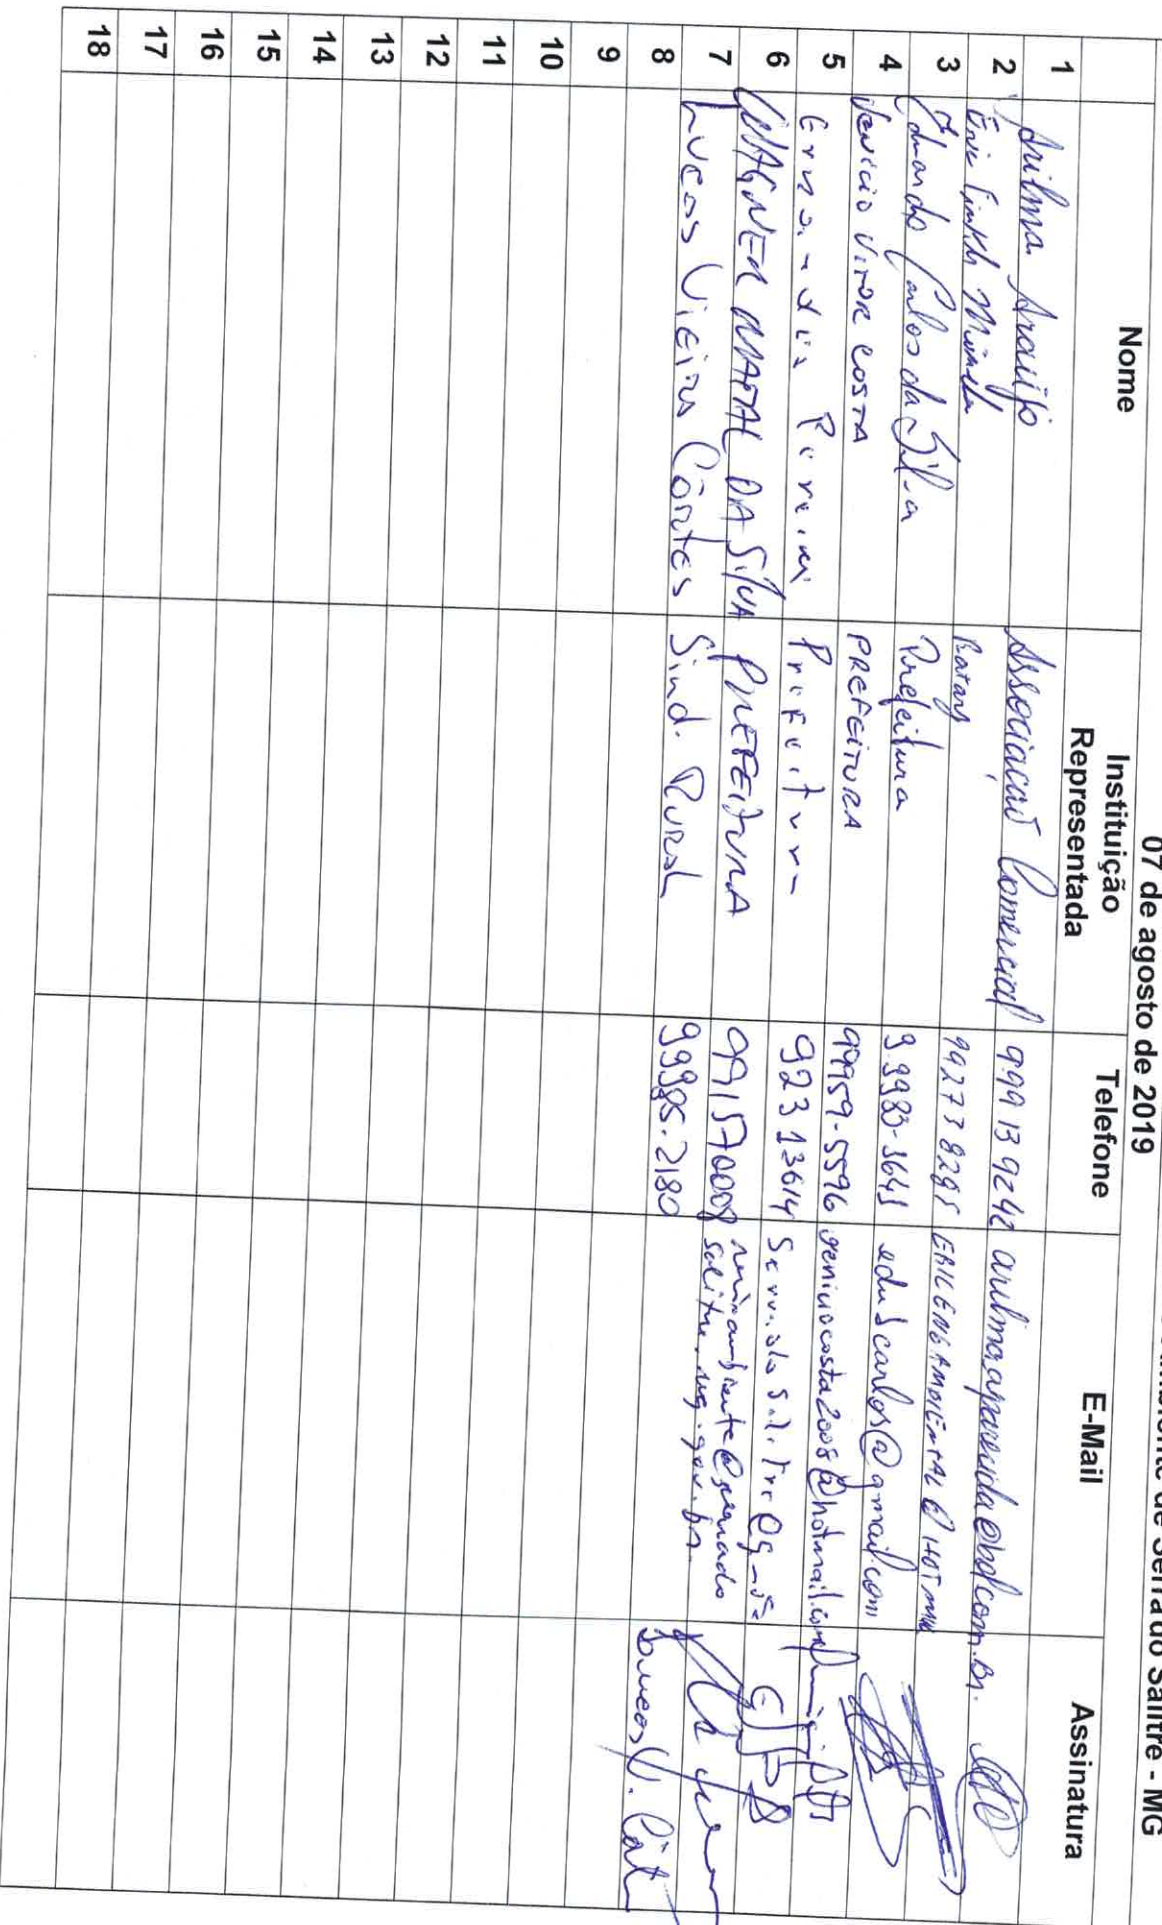 Ambiente de Serra do Salitre - MG
07 de agosto de 2019
Nome Instituição Representada Telefone E-Mail Assinatura
1 Arilma Araújo Associação Comercial 999139242 arilmaaparecida@bol.com.br.
2 Eric 992738295 ERICENGAMBIENTAL@HOTMAIL
3 Eduardo Carlos da Silva Prefeitura 9.9983-3641 edu5carlos@gmail.com
4 Venicio Vitor COSTA PREFEITURA 99959-5596 veniciocosta2008@hotmail.com
5 Pereira Prefeitura 92313614
6 WAGNER AMARAL DA SILVA PREFEITURA 991570008 meioambiente@serrado
salitre.mg.gov.br.
7 Lucas Vieira Côrtes Sind. Rural 99985.2180 Lucas V. Côrt
8
9
10
11
12
13
14
15
16
17
18